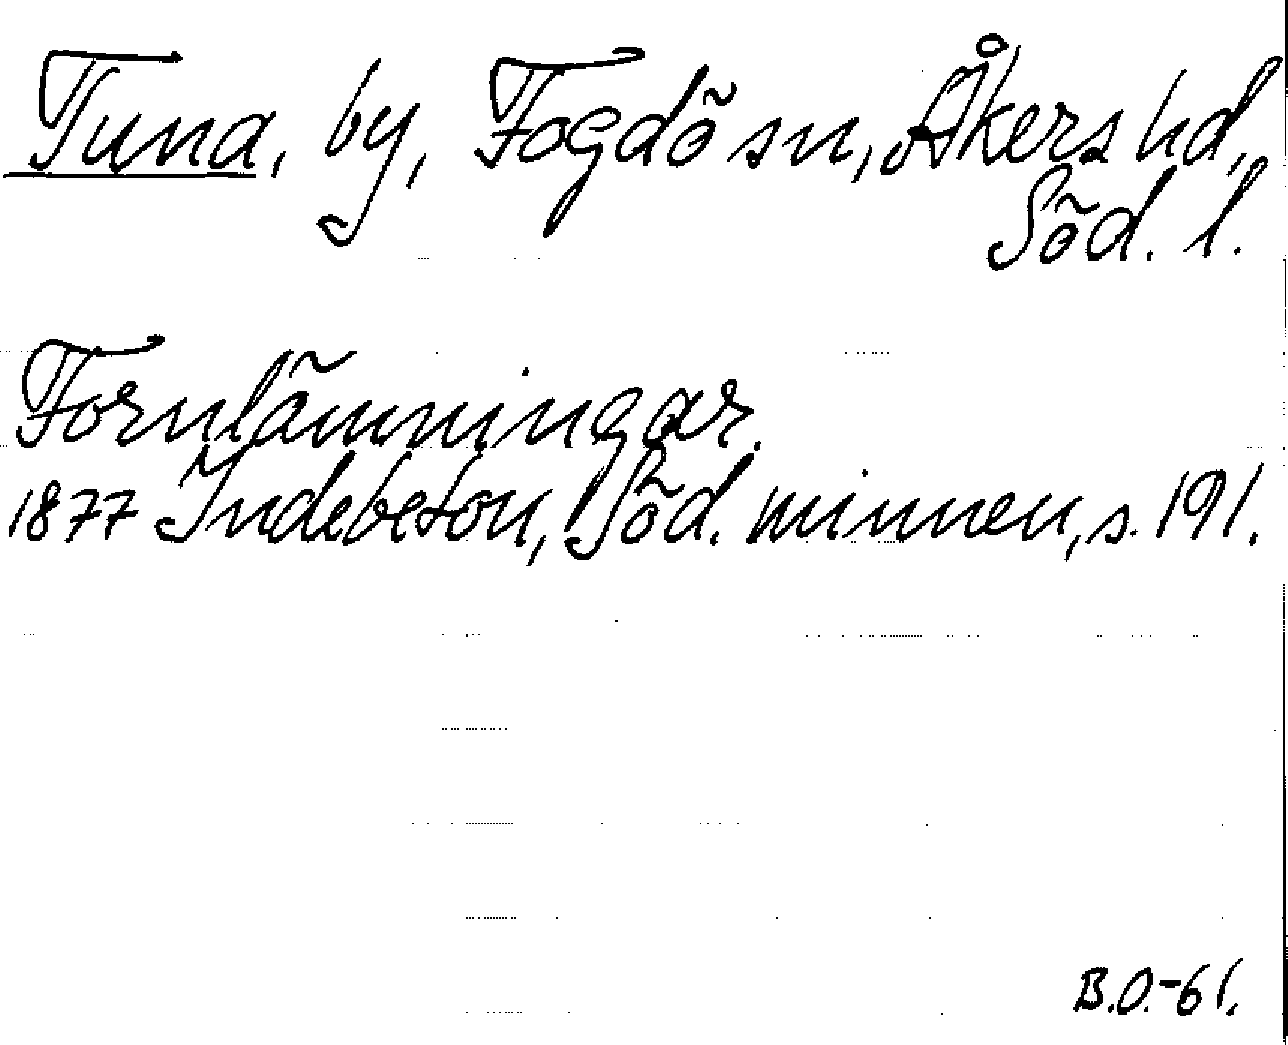 Tuna, by, Fogdö sn, Åkers hd,
Söd. l.
Fornlämningar.
1877 Indebetou, Söd. minnen, s. 191.
B.O.-61.